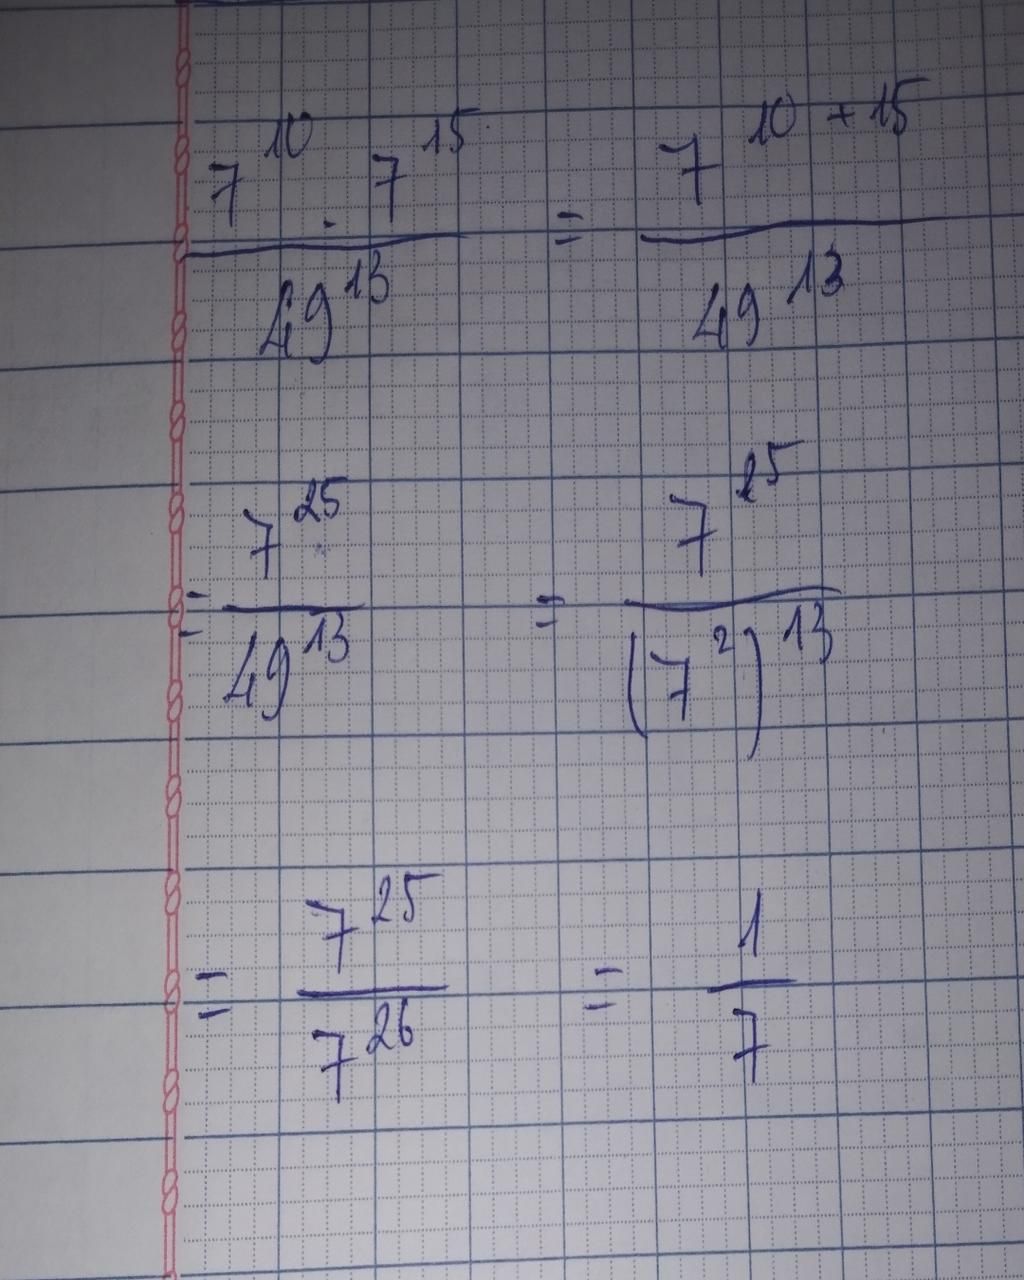 7^10 · 7^15 / 49^13 = 7^10+15 / 49^13
= 7^25 / 49^13 = 7^25 / (7^2)^13
= 7^25 / 7^26 = 1 / 7